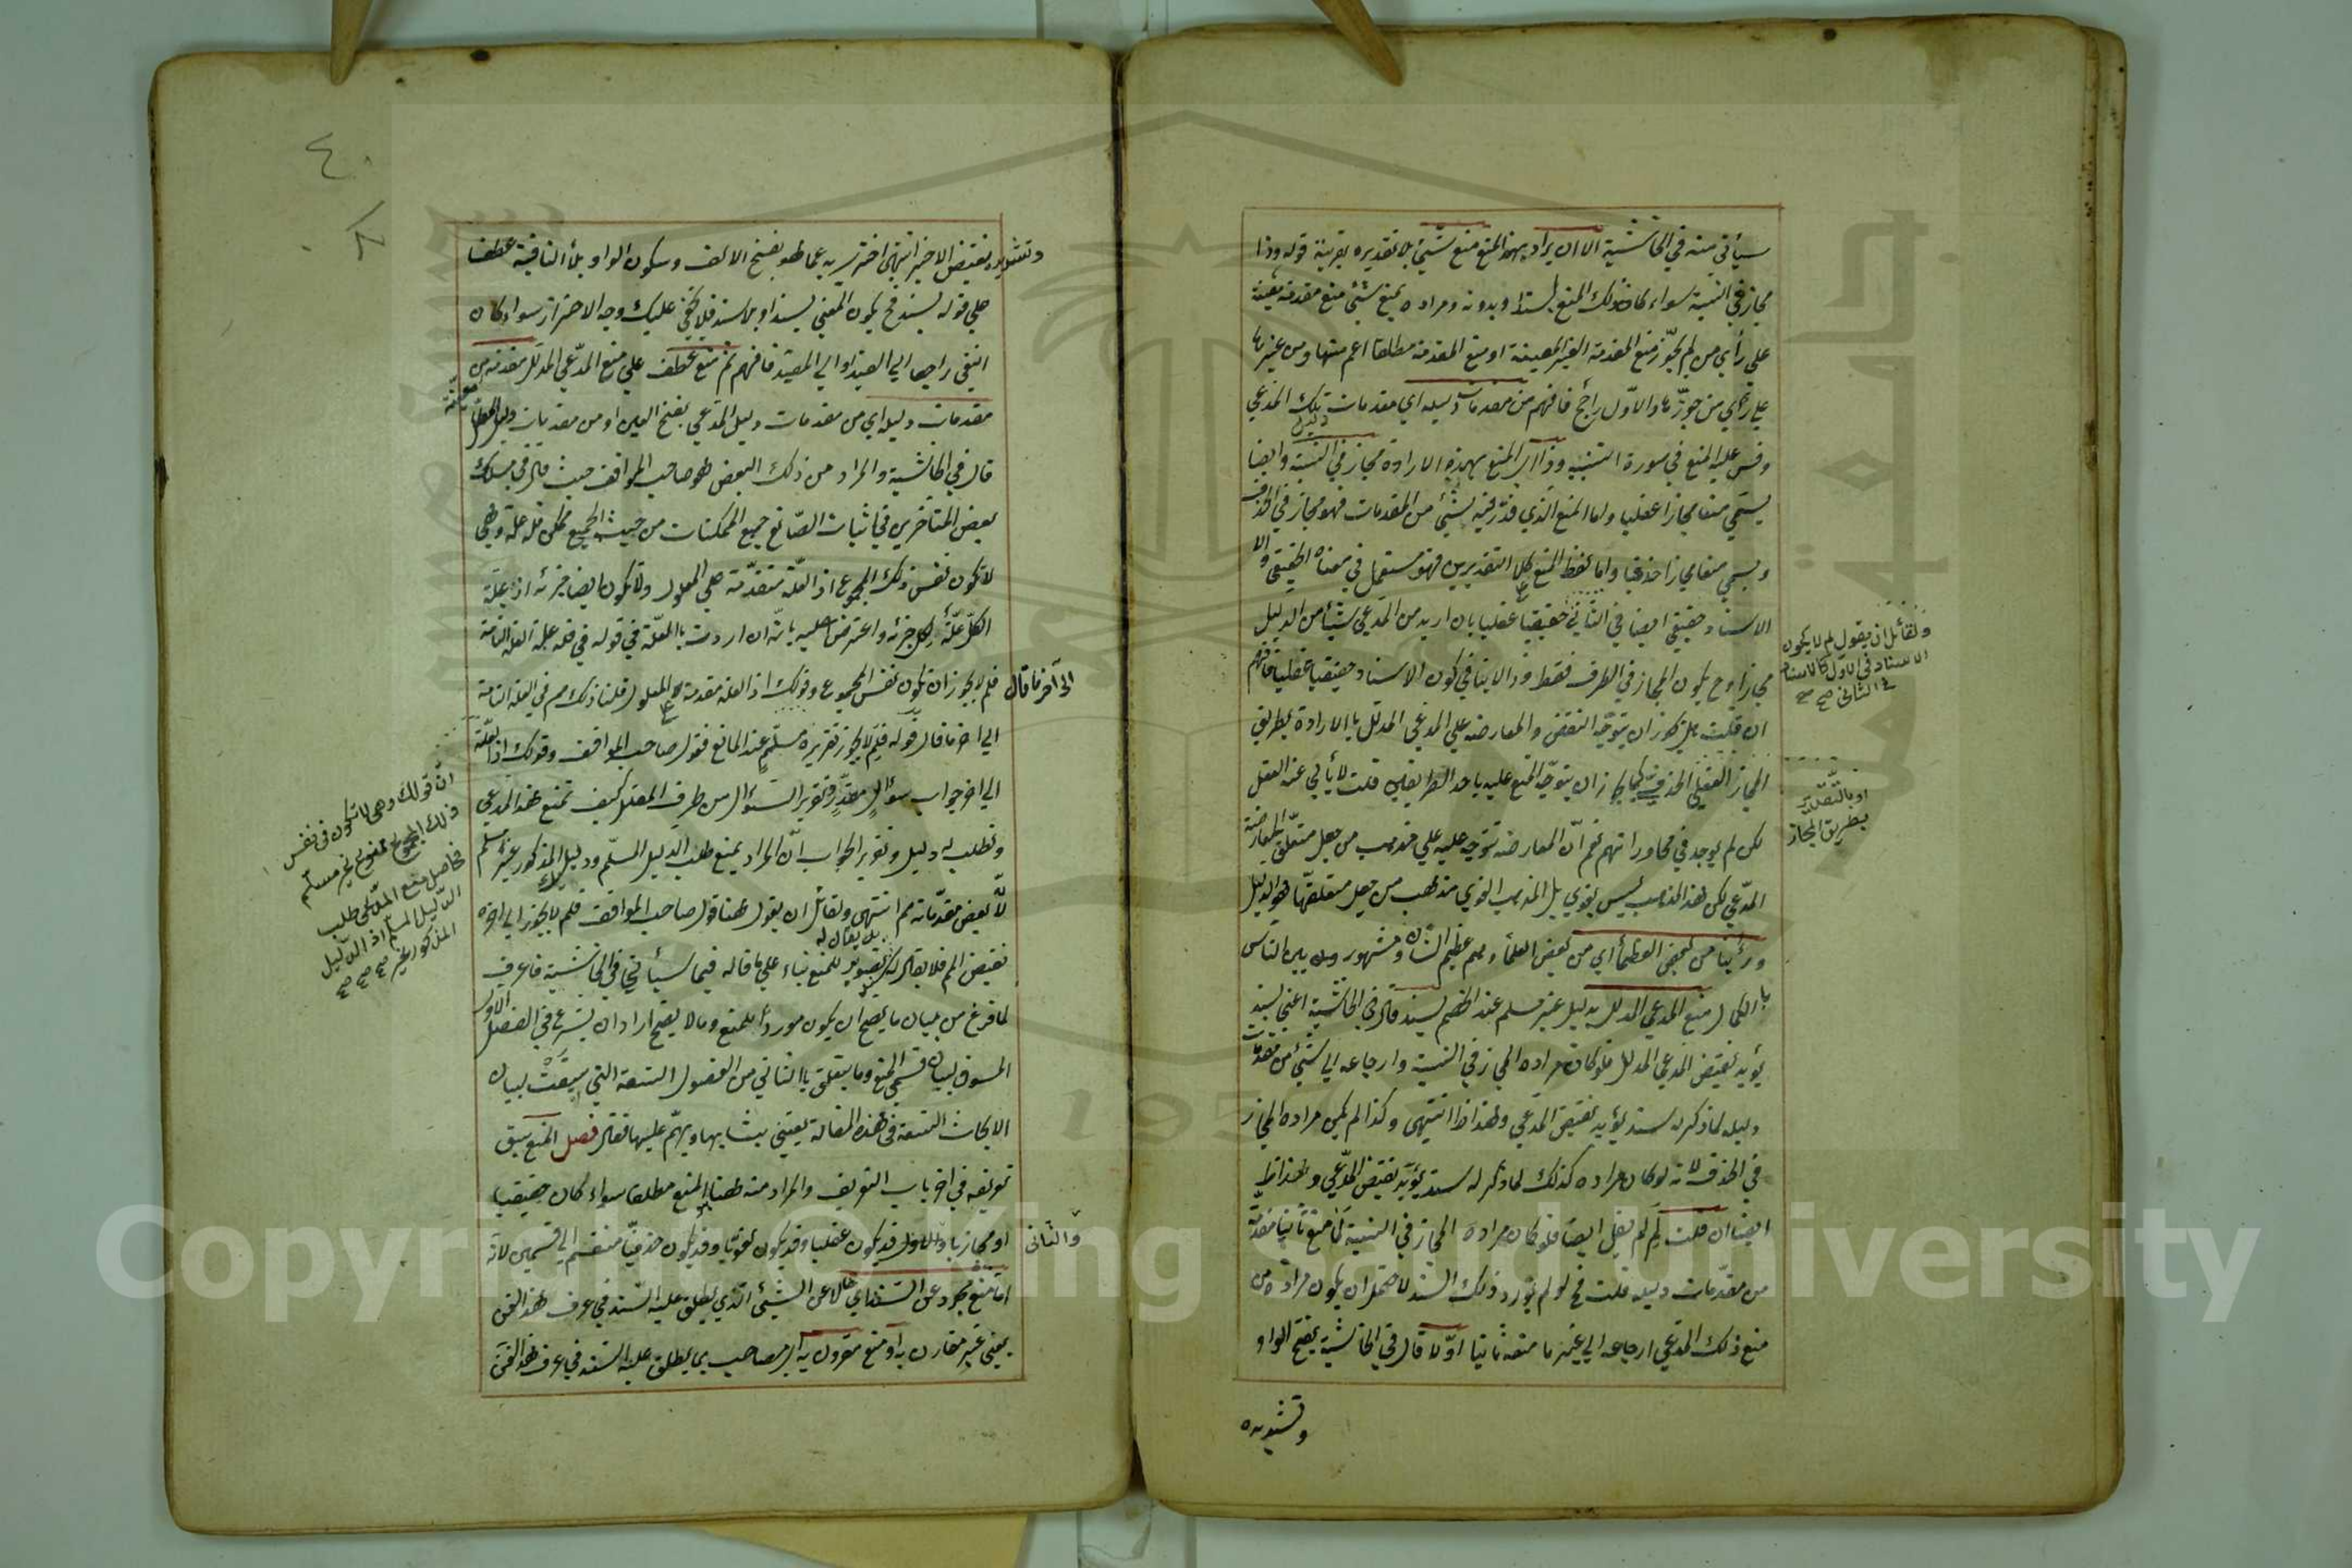 سيأتي منه في الحاشية الا ان يراد بهذا المنع منع شيئ بلا تقديره بقرينة قوله وذا
مجاز في النسبة سواء كان ذلك المنع بسند او بدونه ومراده بمنع شيئ منع مقدمة معينة
علي رأي من لم يجوّز منع المقدمة الغير المعينة او منع المقدمة مطلقا اعم منها ومن غيرها
علي رأي من جوّزها والاوّل راجح فافهم من مقدمات دليله اي مقدمات دليل تلك المدعي
وقس عليه المنع في صورة التنبيه وذا اي المنع بهذه الارادة مجاز في النسبة وايضا
يسمي منعا مجازا عقليا واما المنع الذي قدّر فيه شيئ من المقدمات فهو مجاز في الحذف
ويسمي منعا مجازا حذفيا واما لفظ المنع علي كلا التقديرين فهو مستعمل في معناه الحقيقي والا
الاسناد حقيقي ايضا في الثاني حقيقيا عقليا بان اريد من المدعي شيئا من الدليل
مجازا وح يكون المجاز في الطرف فقط وذا لا ينافي كون الاسناد حقيقيا عقليا فافهم
ان قلت هل يجوز ان يتوجّه النقض والمعارضة علي المدعي المدلل بالارادة بطريق
المجاز العقلي الحذفي كما يجوز ان يتوجّه المنع عليه باحد الطرايقين قلت لا يأبي عنه العقل
لكن لم يوجد في محاوراتهم نعم انّ المعارضة تتوجه عليه علي مذهب من جعل متعلّق المعارضة
المدّعي لكن هذا المذهب ليس بقوي بل المذهب القوي مذهب من جعل متعلقها هو الدليل
ورأينا من بعض العظمأ اي من بعض العلمأ وهم عظيم الشأن ومشهور بين الناس
بالكمال منع المدعي المدلل بدليل غير مسلم عند الخصم بسند قال في الحاشية اعني بسند
يؤيد نقيض المدعي المدلل فلو كان مراده المجاز في النسبة وارجاعه الي شيئ من مقدمات
دليله لما ذكر له سند يؤيد نقيض المدّعي وهذا ظ انتهي وكذا لم يكن مراده المجاز
في الحذف لانه لو كان مراده كذلك لما ذكر له سند يؤيد نقيض المدّعي وهذا ظ
ايضا ان قلت لِمَ لم يقل ايضا فلو كان مراده المجاز في النسبة لما منع ثانيا مقدّمة
من مقدّمات دليله قلت ح لو لم يورد ذلك السند لاحتمل ان يكون مراده من
منع ذلك المدعي ارجاعه الي غير ما منعه ثانيا اوّلا قال في الحاشية بفتح الواو
وتشديده
ولقائل ان يقول لم لا يكون
الاسناد في الاول كالاسناد
في الثاني
او بالتقدير
بطريق المجاز
وتشديده نقيض الاخير انتهي احترز به عما هو بفتح الالف وسكون الواو بلأ النافية عطفا
علي قوله بسند فح يكون المعني بسند او بلا سند فلا يخفي عليك وجه الاحتراز سواء كان
النفي راجعا الي القيد او الي المقيد فافهم ثم منع عطف علي منع المدّعي المدلل مقدمة من
معينة
مقدمات دليله اي من مقدمات دليل المدّعي بفتح العين او من مقدمات دليل
قال في الحاشية والمراد من ذلك البعض هو صاحب المواقف حيث قال في مسلك
بعض المتأخرين في اثبات الصّانع جميع الممكنات من حيث الجميع ممكن فله علة وهي
لا تكون نفس ذلك المجموع اذ العلّة متقدّمة علي المعلول ولا تكون ايضا جزئه اذ علّة
الكلّ علّة لكل جزئه واعترض عليه بانّه ان اردت بالعلّة في قوله في فله علة العلة التامة
فلم لا يجوز ان تكون نفس المجموع وقولك اذ العلة مقدمة علي المعلول قلنا ذلك مم في العلة التامة
الي آخر ما قال
الي اخر ما قال قوله فلِمَ لا يجوز تقريره مسلّم عند المانع فقول صاحب المواقف وقولك اذ العلّة
الي اخر جواب سؤال مقدّر وتقرير السّؤال من طرف المعلل كيف تمنع هذا المدعي
وتطلب له دليل وتقرير الجواب انّ المراد بمنع طلب الدليل المسلّم ودليل المذكور غير مسلم
لانّ بعض مقدّماته مم انتهي ولقائل ان يقول هنا قول صاحب المواقف فلم لا يجوز الي اخره
نقيض المم فلا يقال له سند بل يقال له تصوير للمنع بناء علي ما قاله فيما سيأتي في الحاشية فاعرف
لما فرغ من بيان ما يصح ان يكون موردا للمنع وما لا يصح اراد ان يشرع في الفصل الاول
المسوق لبيان قسمي المنع وما يتعلق بالثاني من الفصول التسعة التي سيقت لبيان
الابحاث التسعة في هذه المقالة يعتني بشانها ويهتمّ عليها فقال فصل المنع سبق
تعريفه في اخر باب التعريف والمراد منه ههنا المنع مطلقا سواء كان حقيقيا
او مجازيا والاول قد يكون عقليا وقد يكون لغويا وقد يكون حذفيّا منقسم الي قسمين لانّه
والثاني
امّا منع مجرد عن السند اي خال عن الشيئ الذي يطلق عليه السند في عرف هذا الفن
يعني غير مقارن به او منع مقرون به اي مصاحب بما يطلق عليه السند في عرف هذا الفنّ
انّ قولك وهي لا تكون في نفس
ذلك المجموع ممنوع غير مسلّم
فحاصل منع المدّعي طلب
الدّليل المسلّم اذ الدّليل
المذكور غير
٤٠
Copyright © King Saud University
جامعة الملك سعود
1957